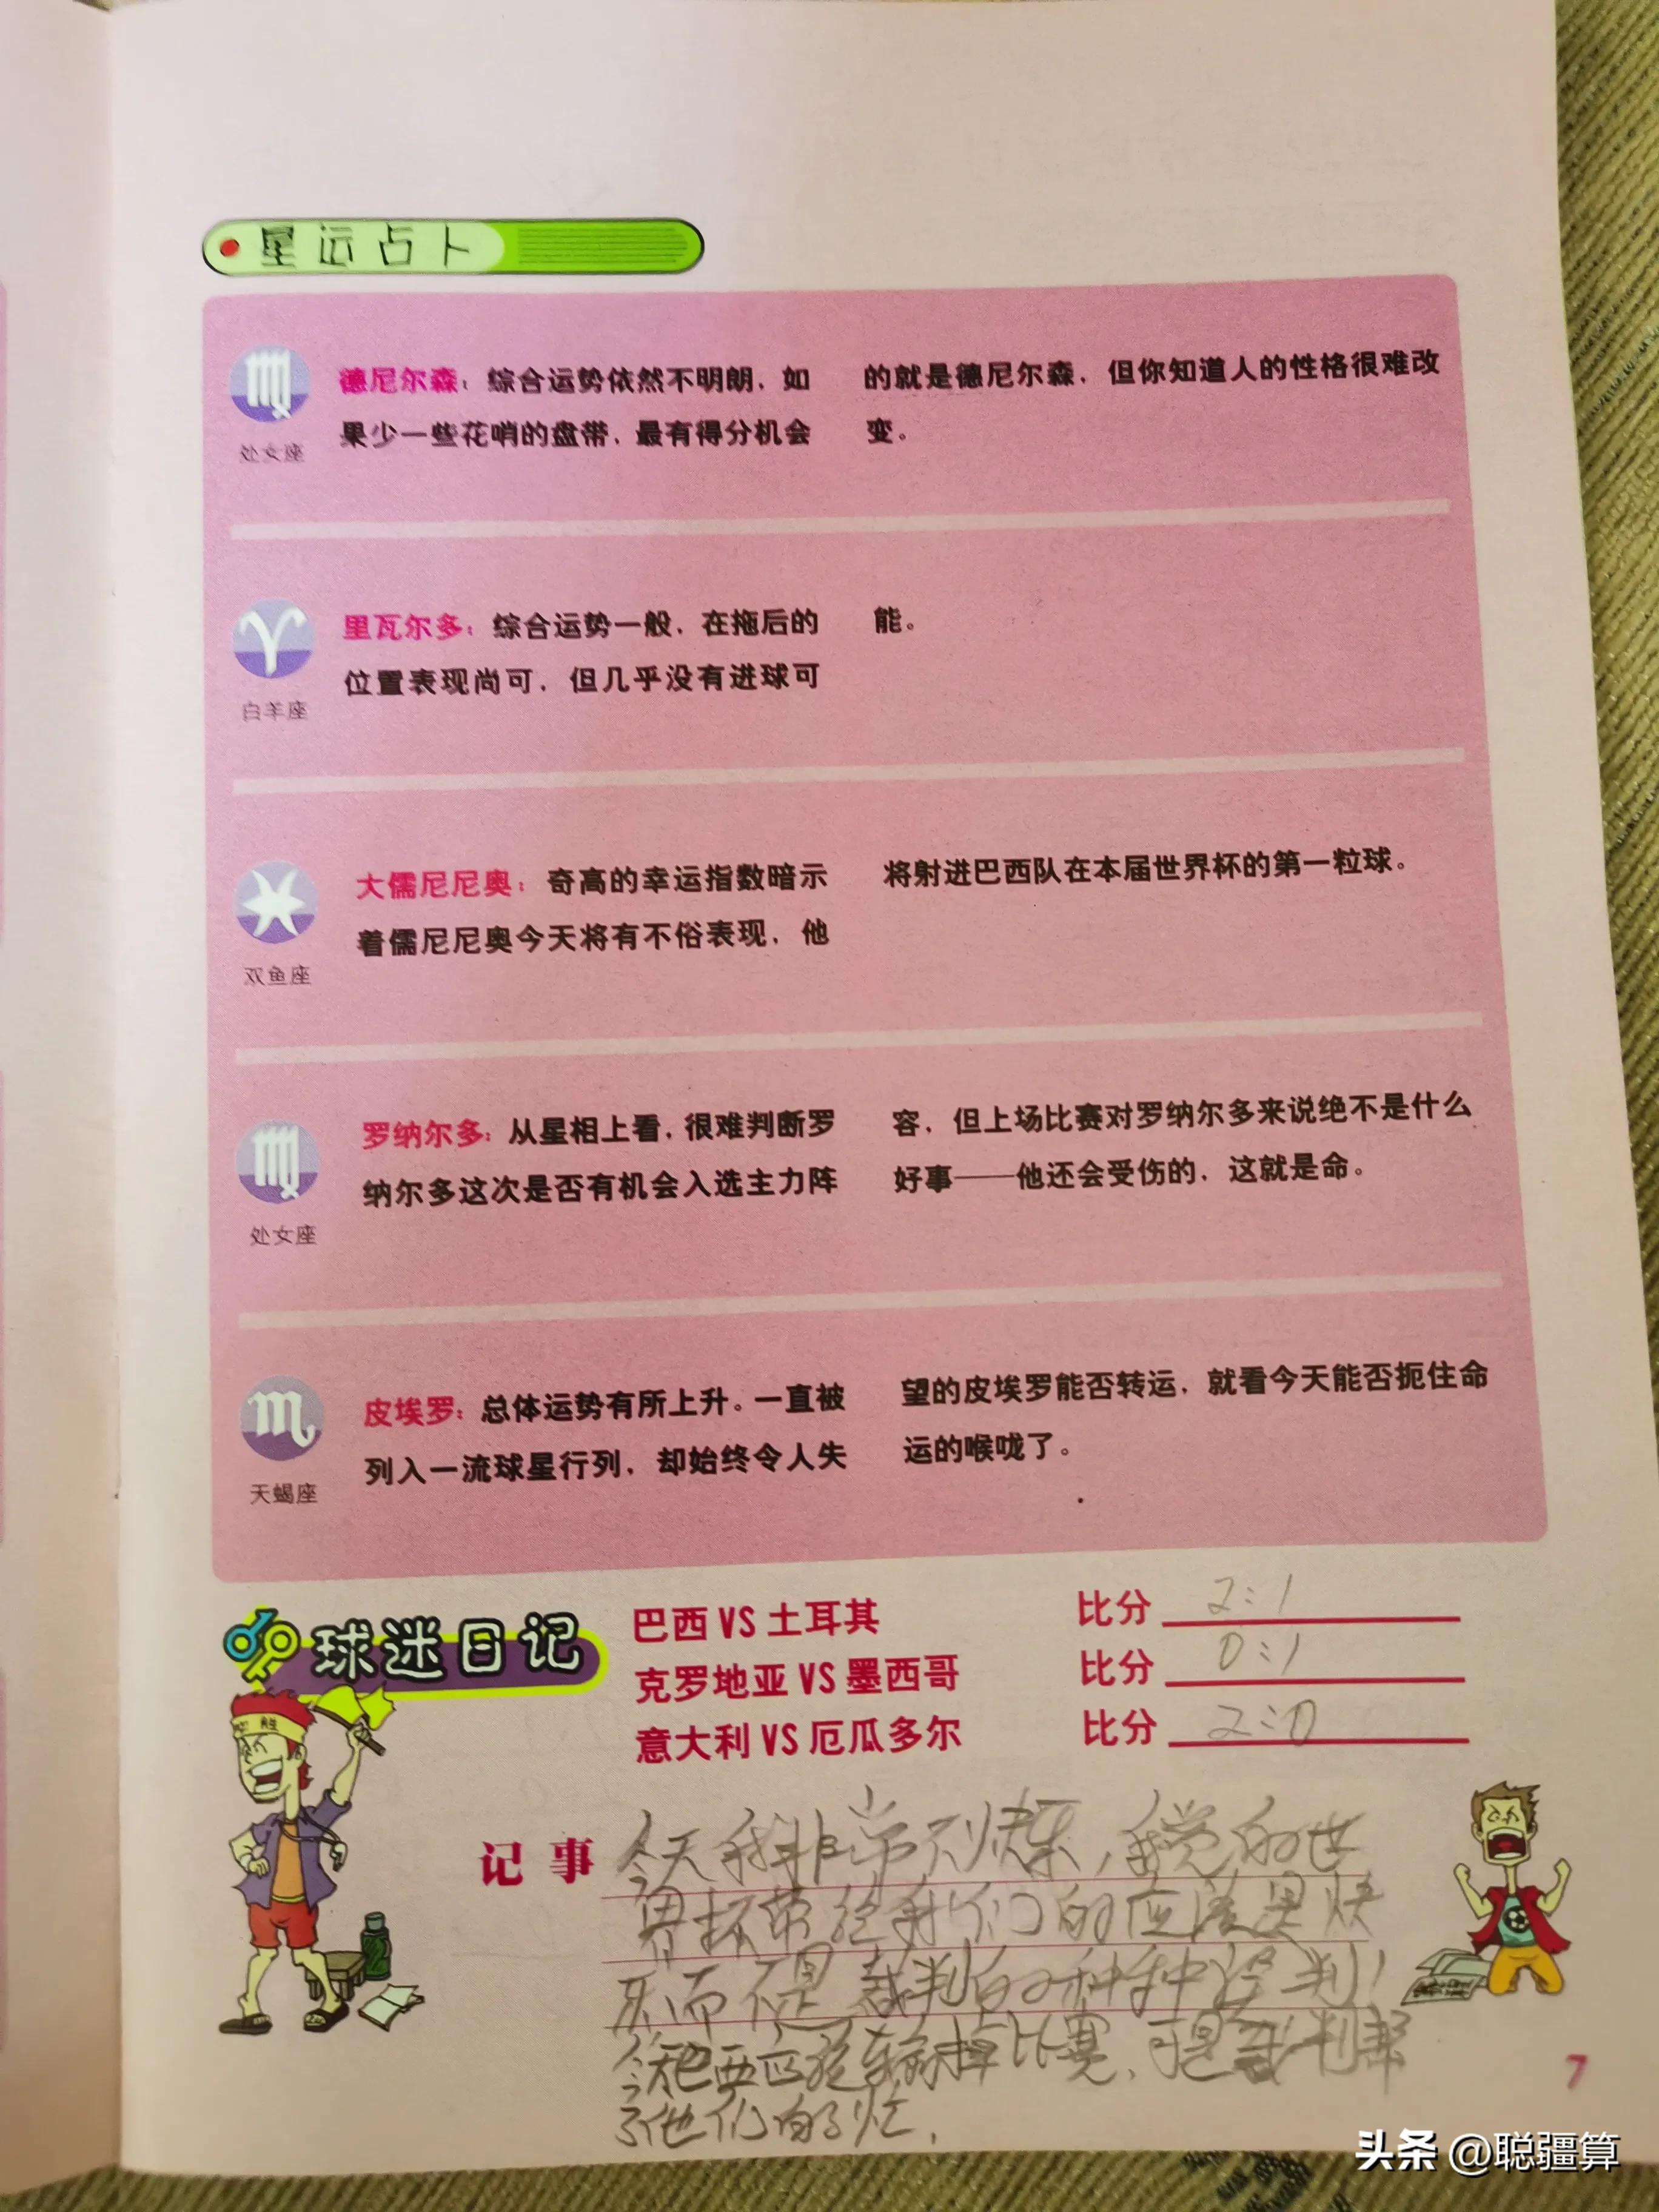 星运占卜
处女座
德尼尔森：综合运势依然不明朗，如
果少一些花哨的盘带，最有得分机会
的就是德尼尔森，但你知道人的性格很难改
变。
白羊座
里瓦尔多：综合运势一般，在拖后的
位置表现尚可，但几乎没有进球可
能。
双鱼座
大儒尼尼奥：奇高的幸运指数暗示
着儒尼尼奥今天将有不俗表现，他
将射进巴西队在本届世界杯的第一粒球。
处女座
罗纳尔多：从星相上看，很难判断罗
纳尔多这次是否有机会入选主力阵
容，但上场比赛对罗纳尔多来说绝不是什么
好事——他还会受伤的，这就是命。
天蝎座
皮埃罗：总体运势有所上升。一直被
列入一流球星行列，却始终令人失
望的皮埃罗能否转运，就看今天能否扼住命
运的喉咙了。
球迷日记
巴西 VS 土耳其 比分 2:1
克罗地亚 VS 墨西哥 比分 0:1
意大利 VS 厄瓜多尔 比分 2:0
记事 今天我非常不快乐，我觉的世
界杯带给我们的应该是快
乐而不是裁判的种种误判！
今天巴西应该输掉比赛，可是裁判帮
了他们的忙．
7
头条 @聪疆算